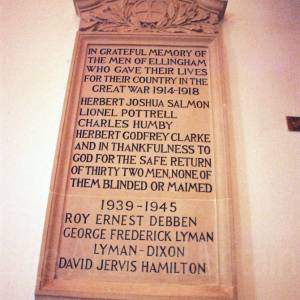 IN GRATEFUL MEMORY OF
THE MEN OF ELLINGHAM
WHO GAVE THEIR LIVES
FOR THEIR COUNTRY IN THE
GREAT WAR 1914-1918
HERBERT JOSHUA SALMON
LIONEL POTTRELL
CHARLES HUMBY
HERBERT GODFREY CLARKE
AND IN THANKFULNESS TO
GOD FOR THE SAFE RETURN
OF THIRTY TWO MEN, NONE OF
THEM BLINDED OR MAIMED
1939-1945
ROY ERNEST DEBBEN
GEORGE FREDERICK LYMAN
LYMAN-DIXON
DAVID JERVIS HAMILTON